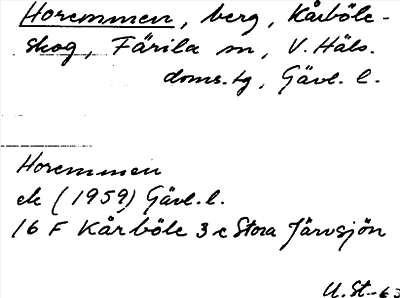 Horemmen, berg, Kårböle-
skog, Färila sn, V. Häls.
doms. tg, Gävl. l.
Horemmen
ek (1959) Gävl. l.
16 F Kårböle 3 c Stora Järvsjön
U. St. -63